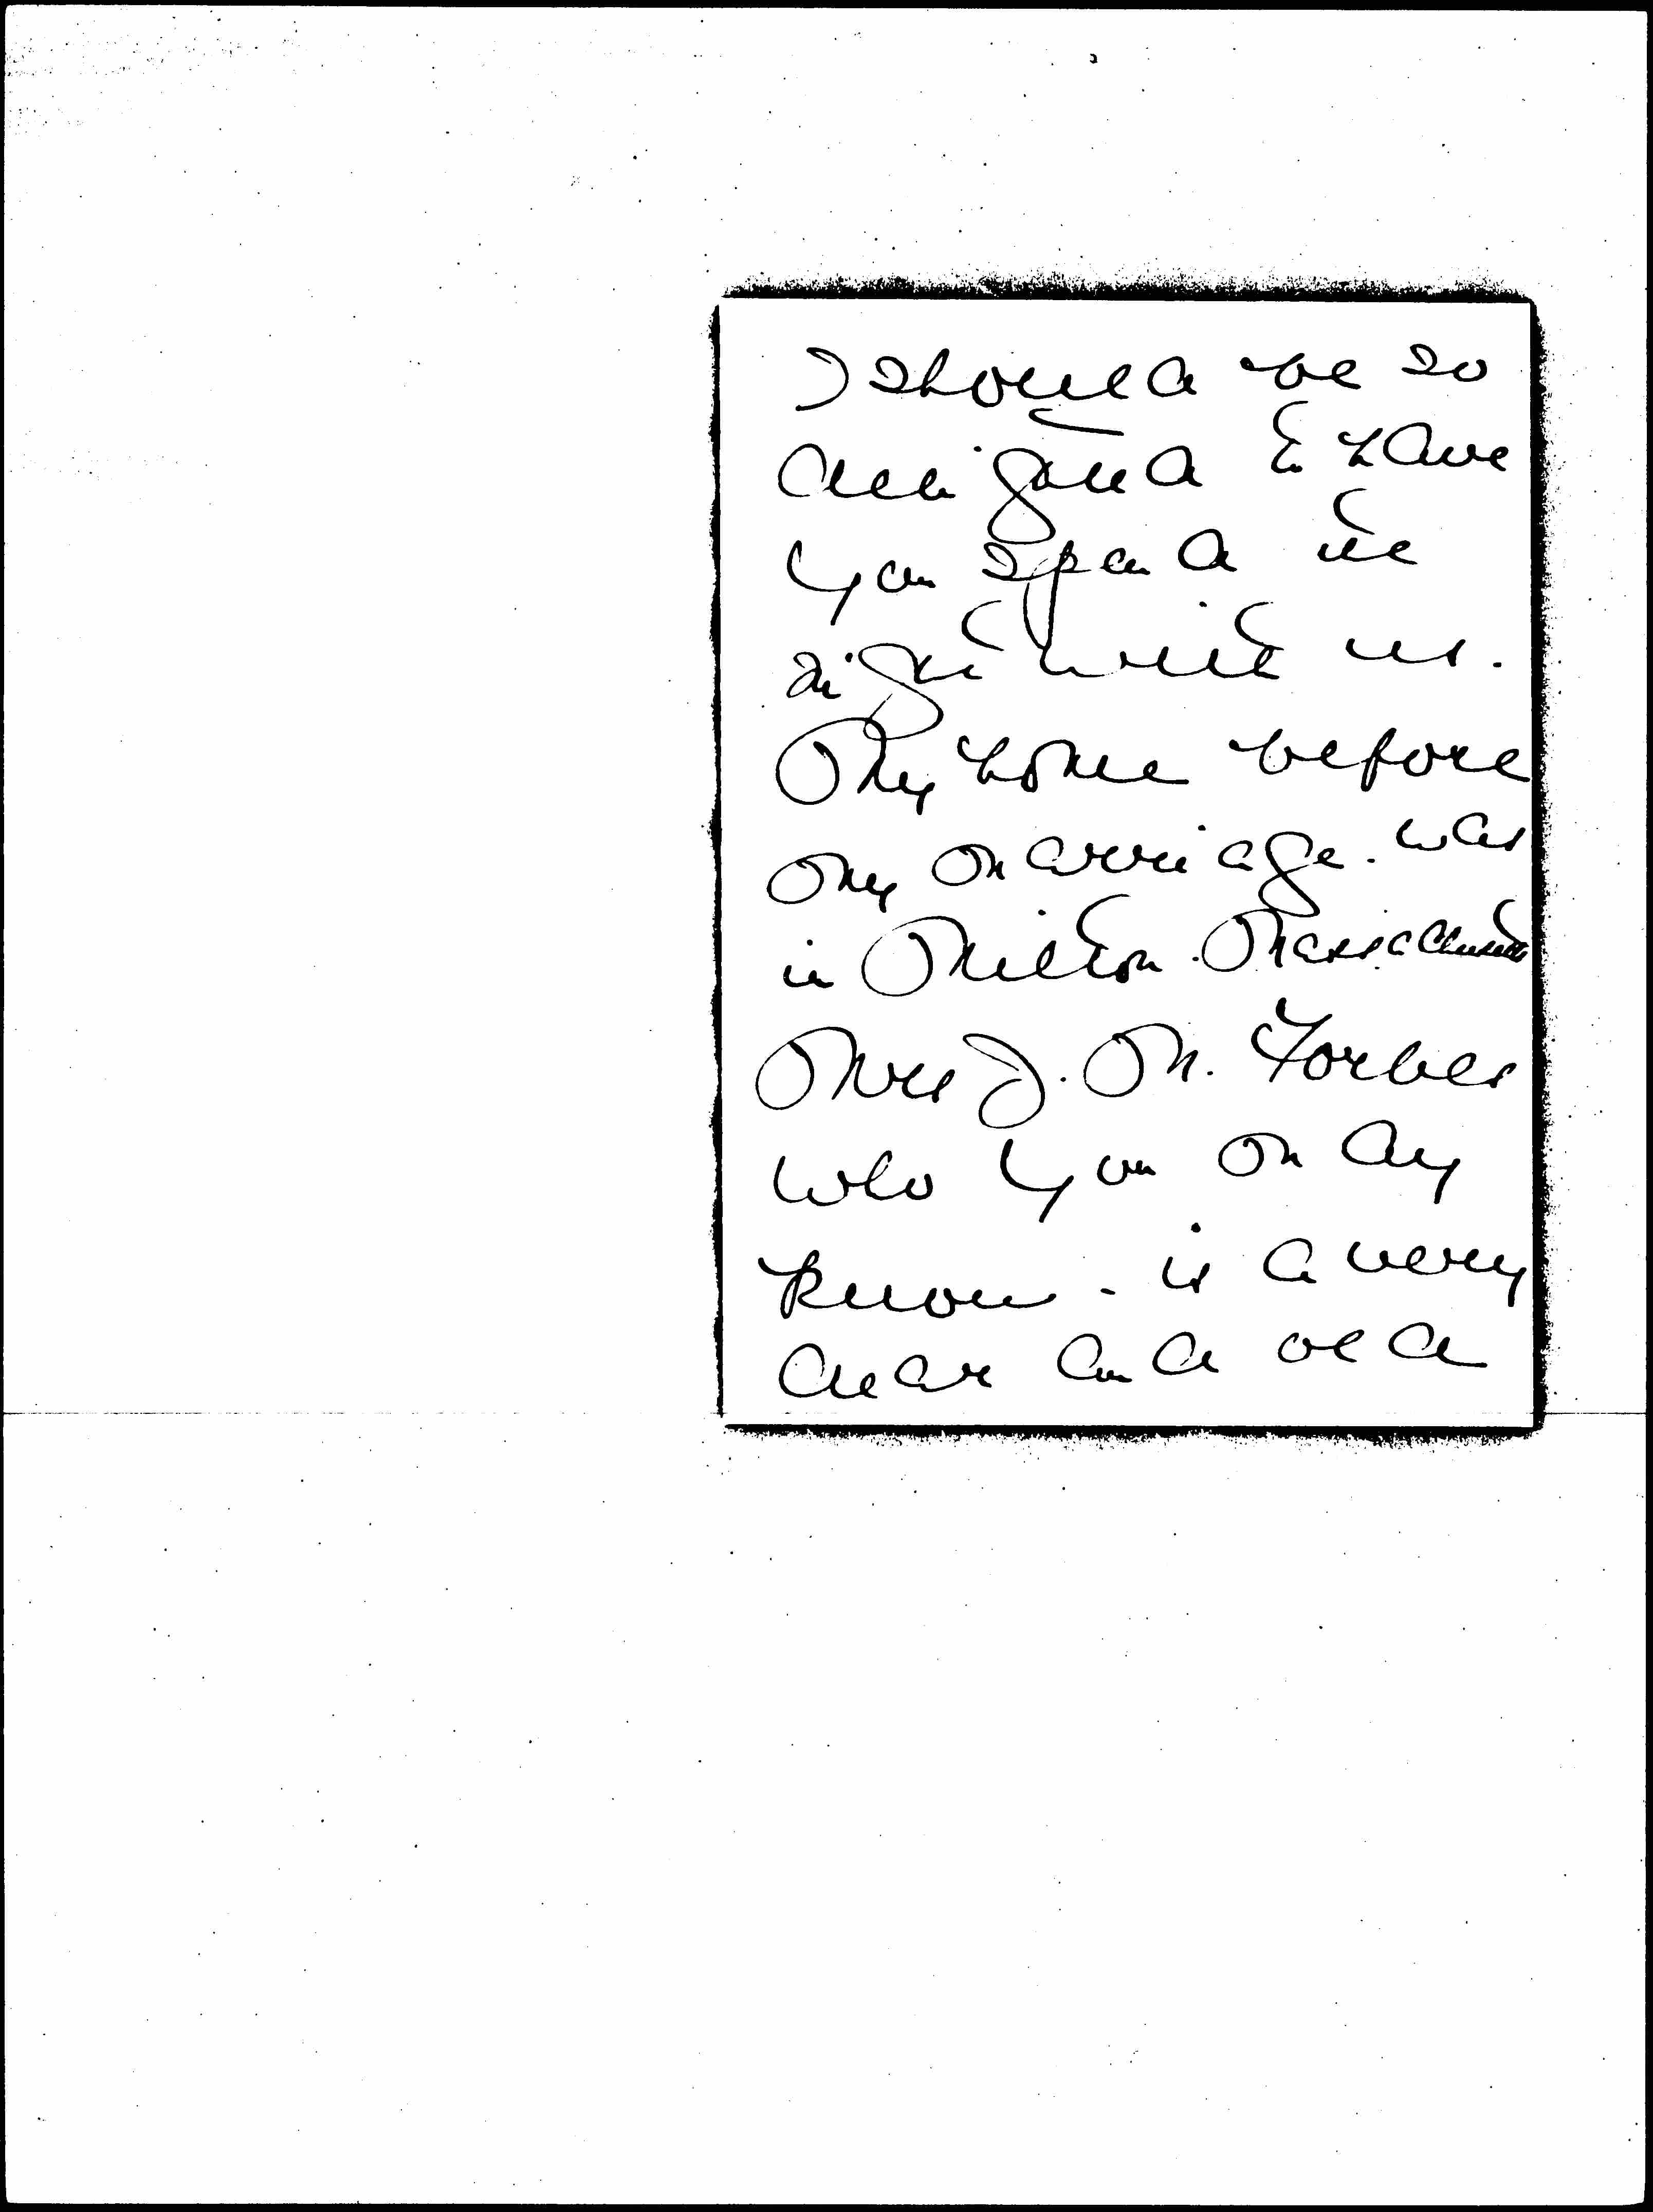 I should be so
delighted to have
you spend the
night with us.
My home before
my marriage. was
in Milton. Massachusetts
Mrs J. M. Forbes
who you may
know - is a very
dear and old